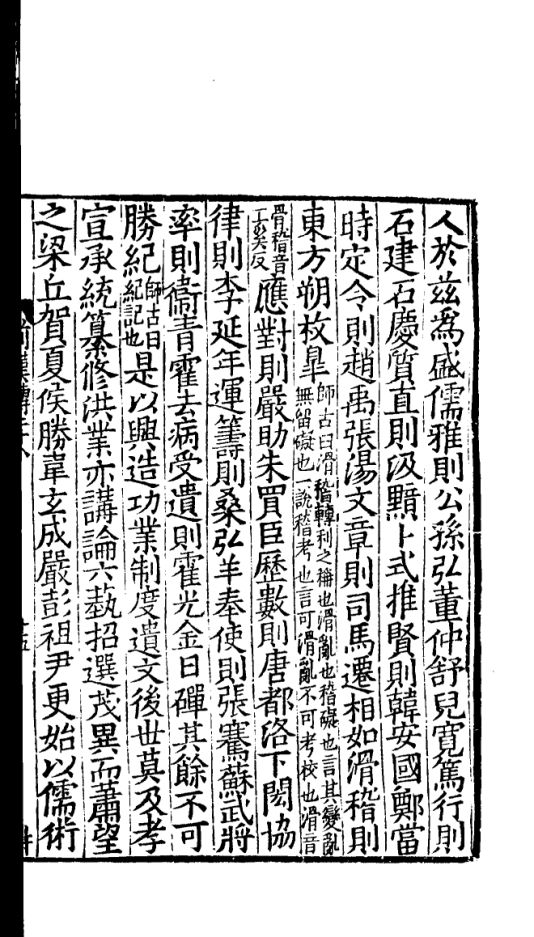 人於兹爲盛儒雅則公孫弘董仲舒兒寬篤行則
石建石慶質直則汲黯卜式推賢則韓安國鄭當
時定令則趙禹張湯文章則司馬遷相如滑稽則
東方朔枚皐師古曰滑稽轉利之稱也滑亂也稽礙也言其變亂無留礙也一說稽考也言可滑亂不可考校也滑音
骨稽音工奚反應對則嚴助朱買臣歷數則唐都洛下閎協
律則李延年運籌則桑弘羊奉使則張騫蘇武將
率則衞青霍去病受遺則霍光金日磾其餘不可
勝紀師古曰紀記也是以興造功業制度遺文後世莫及孝
宣承統纂修洪業亦講論六藝招選茂異而蕭望
之梁丘賀夏侯勝韋玄成嚴彭祖尹更始以儒術